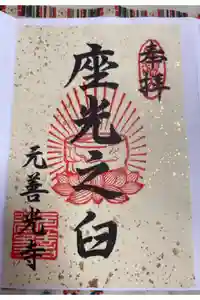 奉拝
座光之臼
元善光寺